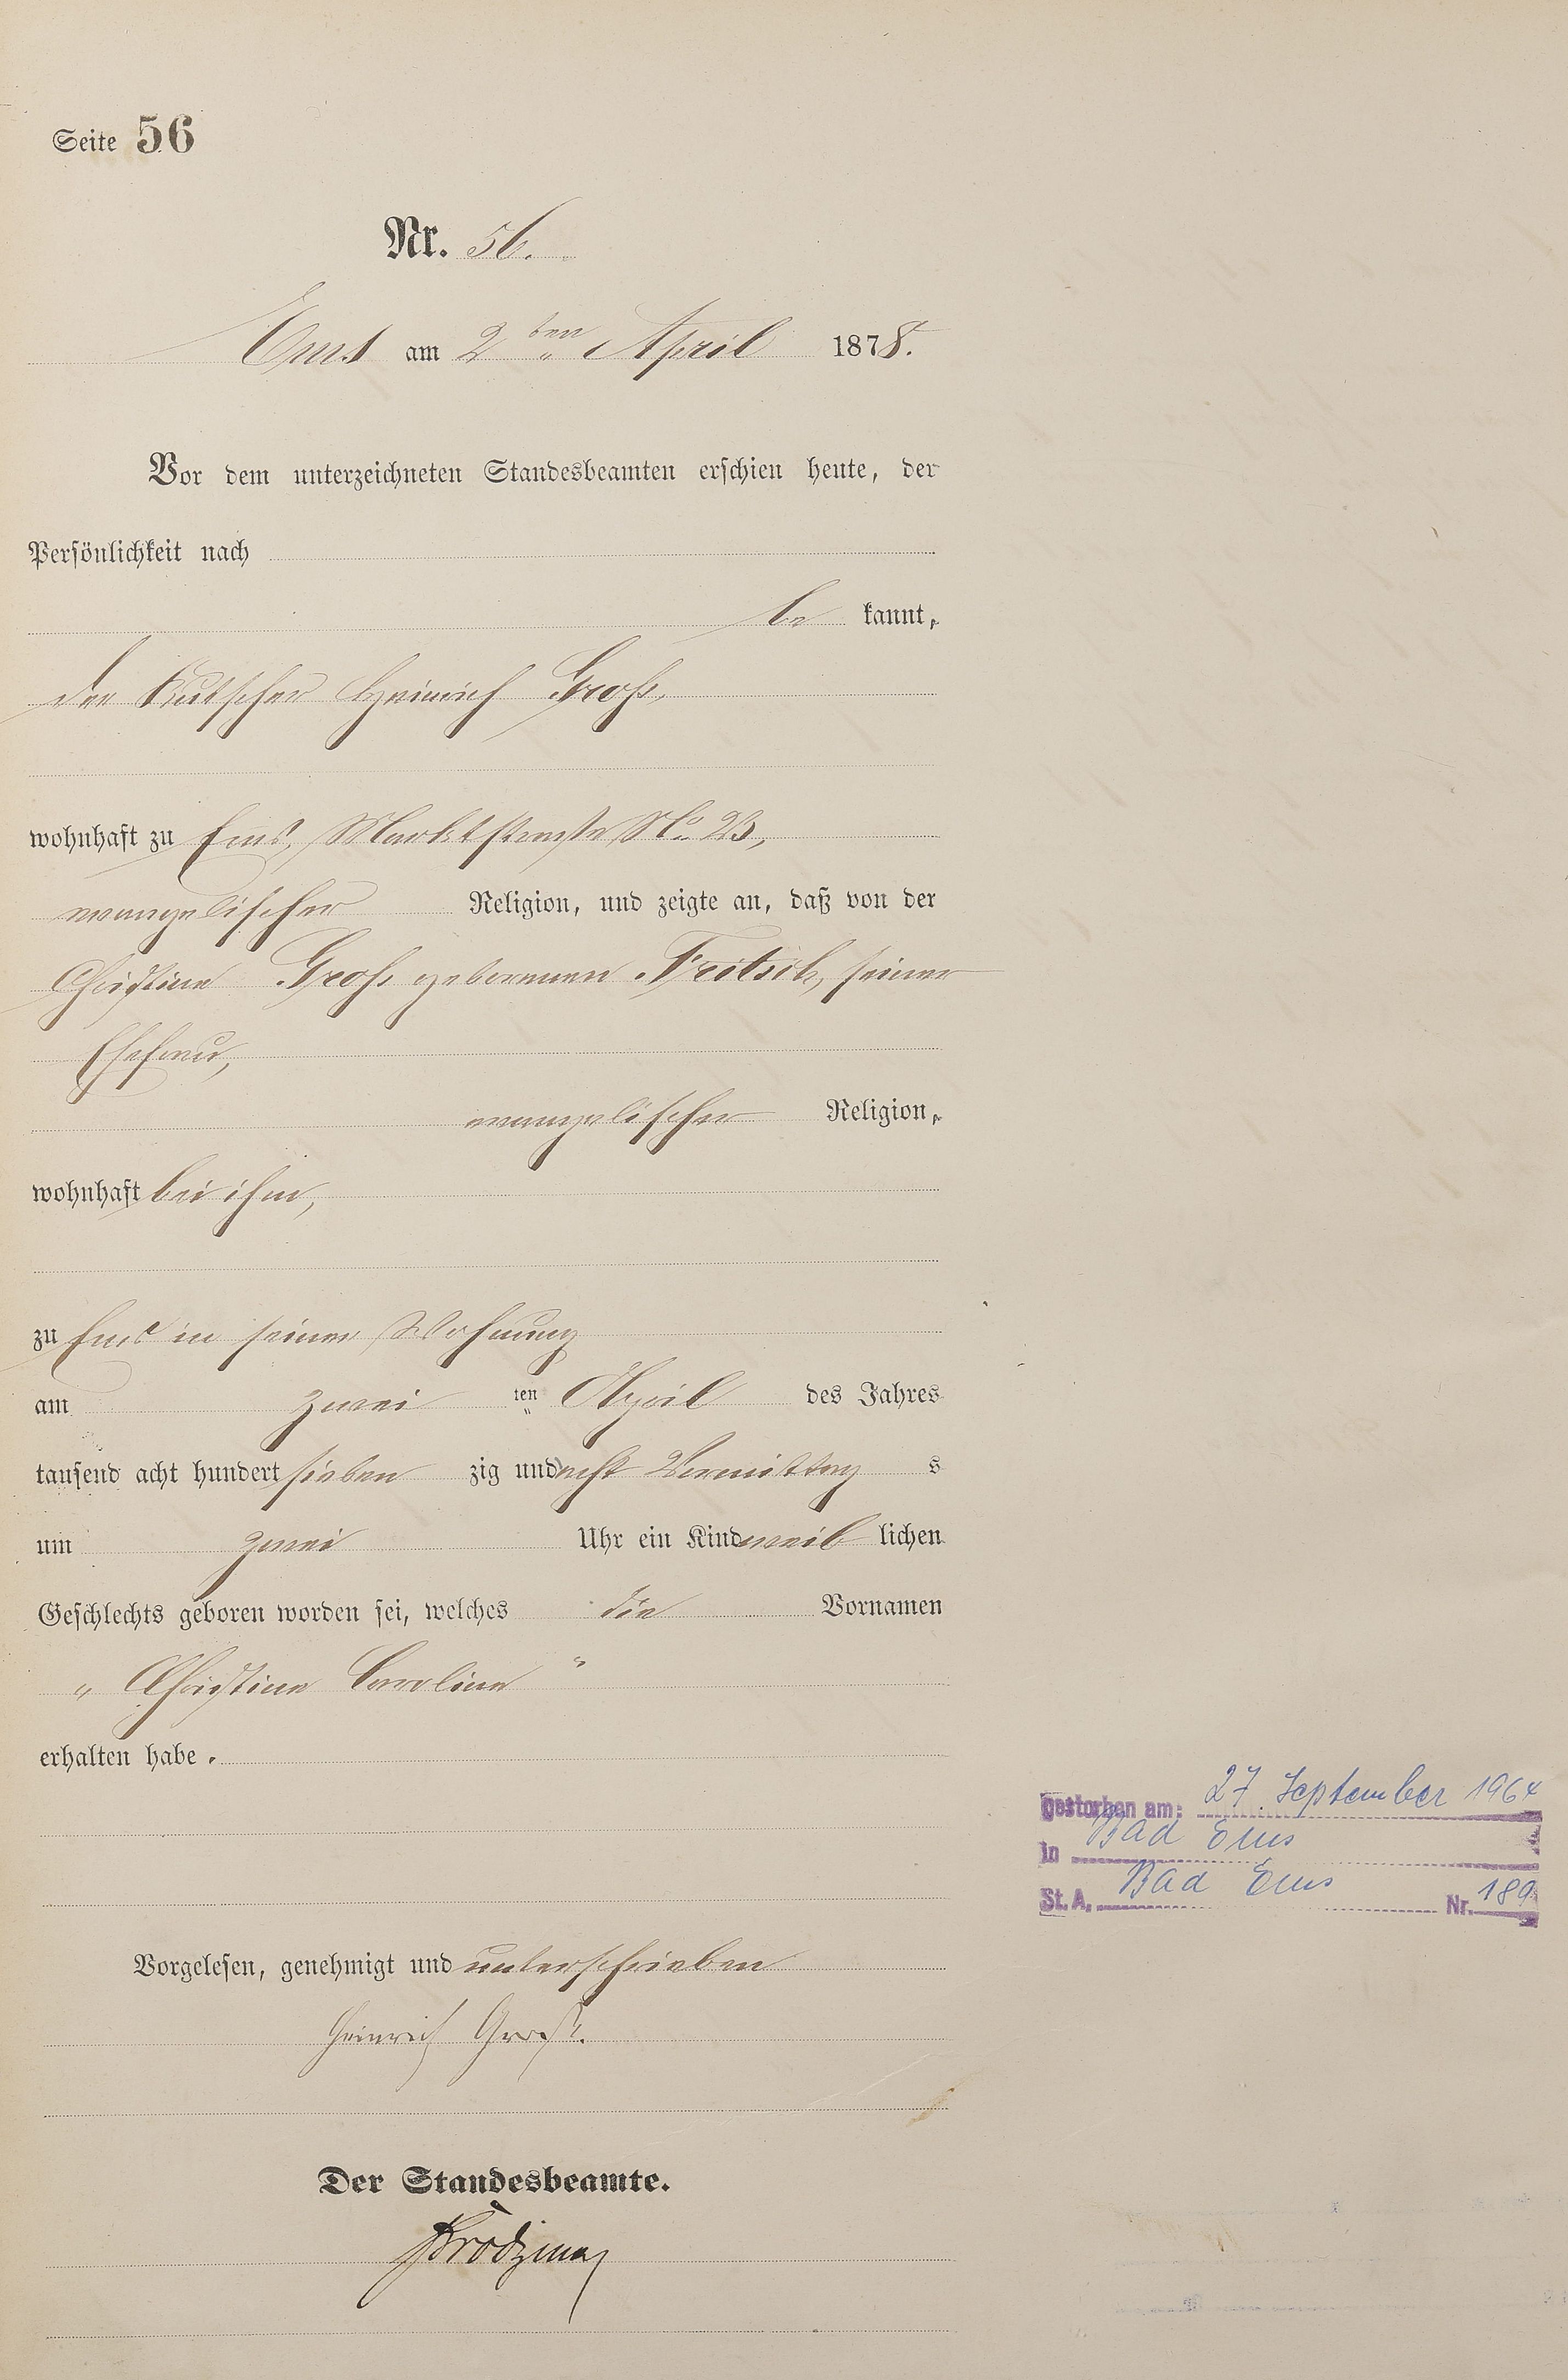 Seite 56
Nr. 56.
Ems am 2ten April 1878.
Vor dem unterzeichneten Standesbeamten erschien heute, der
Persönlichkeit nach
be kannt,
der Kutscher Heinrich Groß,
wohnhaft zu Ems, Marktstraße No 23,
evangelischer Religion, und zeigte an, daß von der
Christine Groß geborenen Fritsch, seiner
Ehefrau,
evangelischer Religion,
wohnhaft bei ihm,
zu Ems in seiner Wohnung
am zwei ten April des Jahres
tausend acht hundert sieben zig und acht Vormittag s
um zwei Uhr ein Kind weib lichen
Geschlechts geboren worden sei, welches die Vornamen
„ Christine Caroline "
erhalten habe.
gestorben am: 27. September 1964
in Bad Ems
St. A. Bad Ems Nr. 189
Vorgelesen, genehmigt und unterschrieben
Heinrich Groß.
Der Standesbeamte.